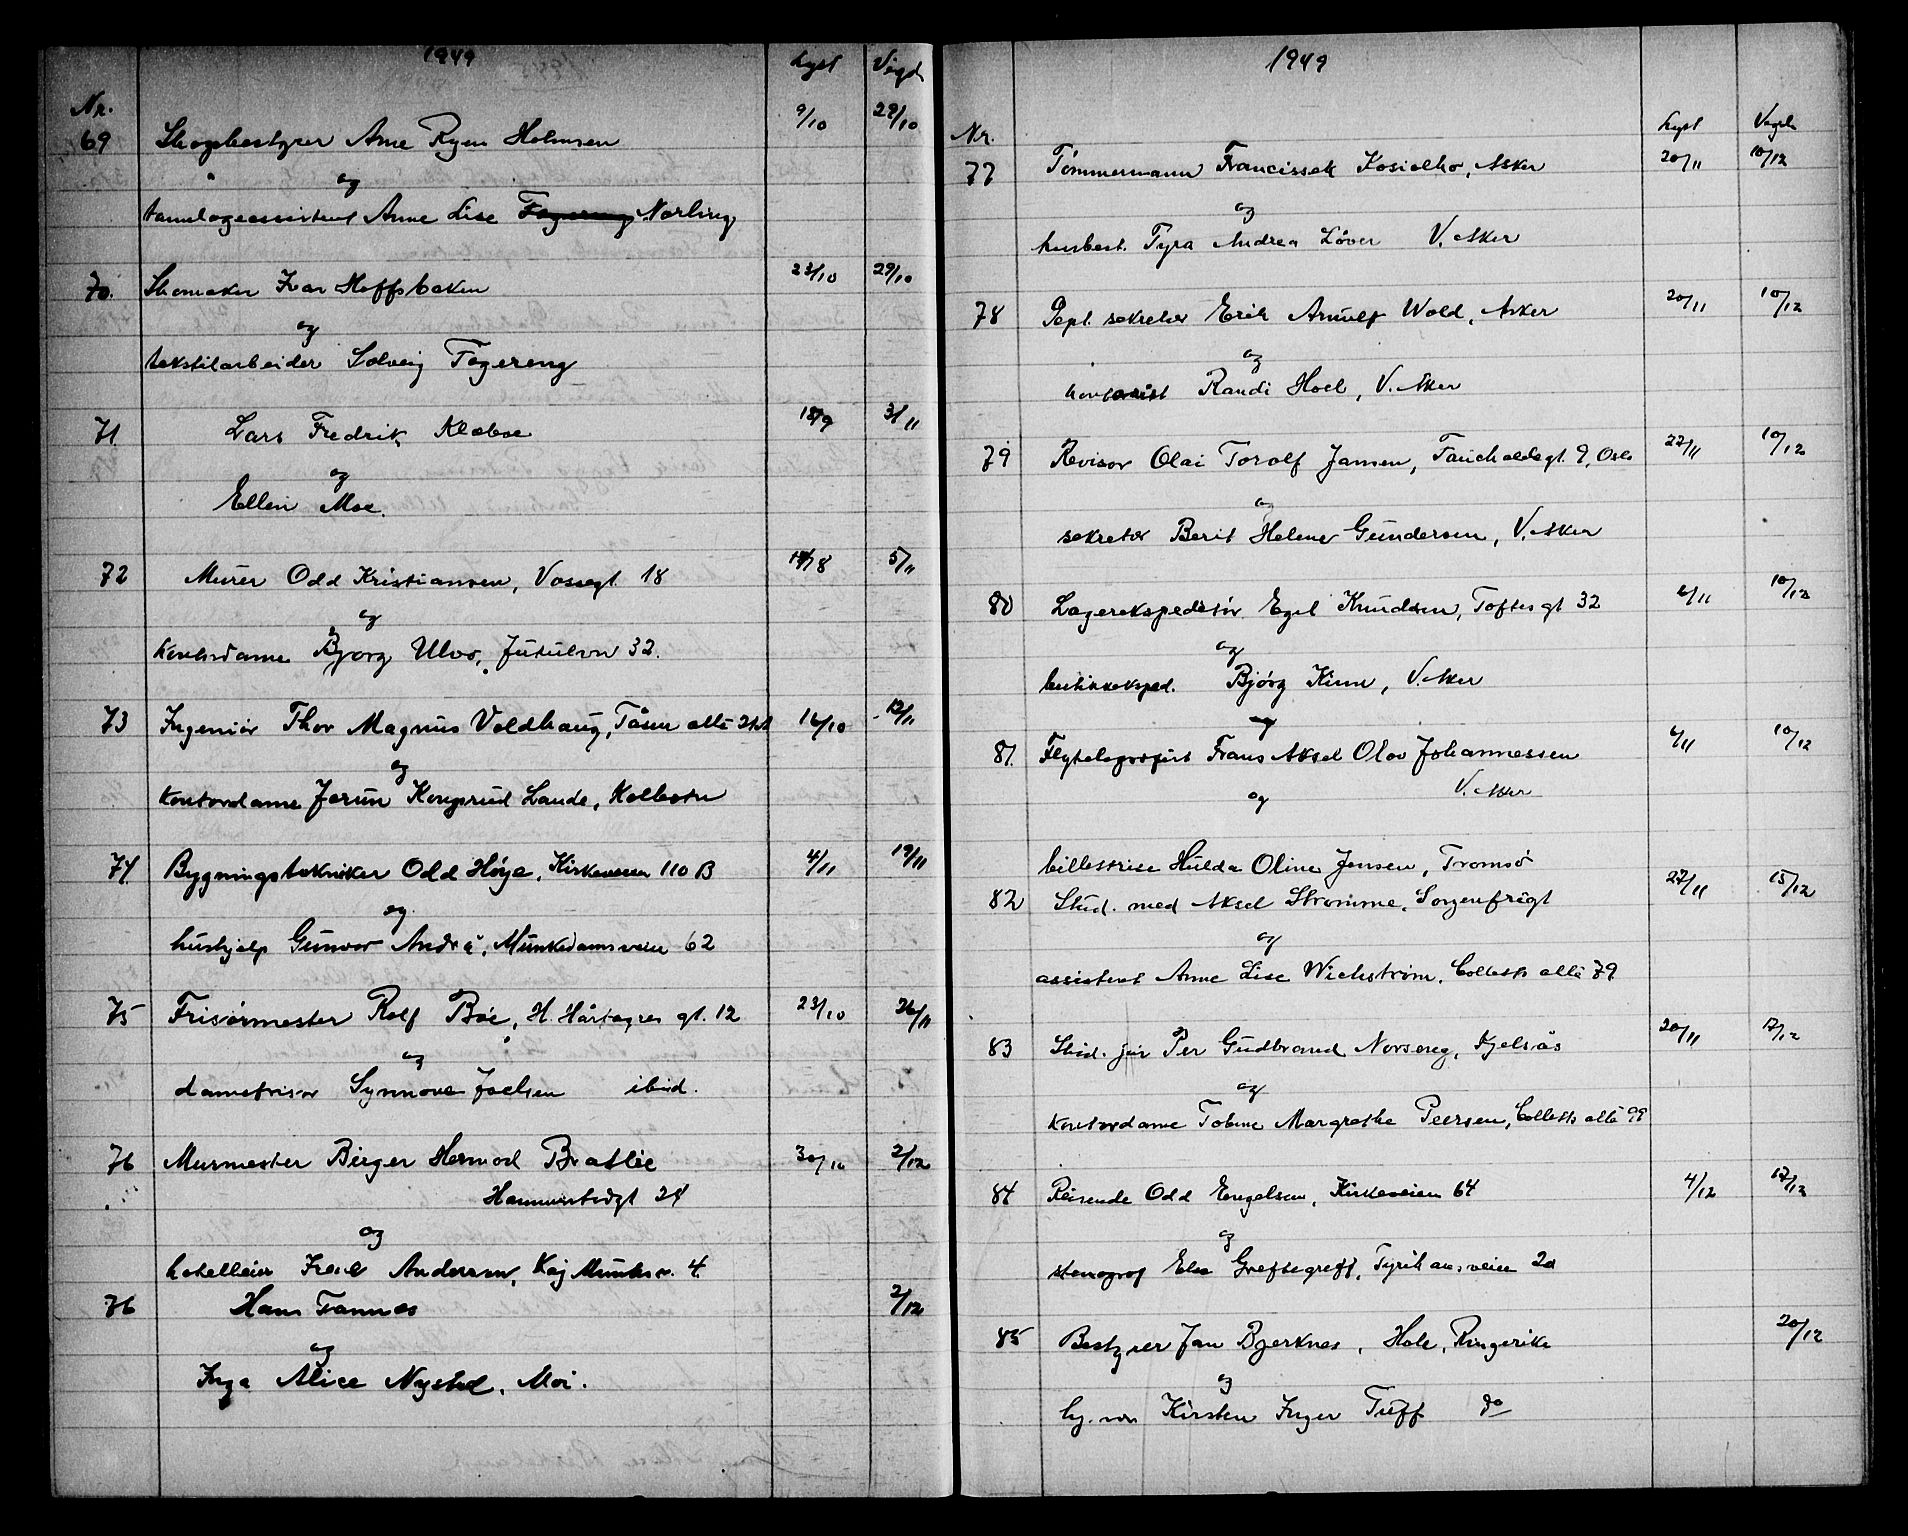 1949
Lyst Vigd
Nr.
69 Skogbestyrer Arne Ryen Holmsen 9/10 29/10
og
tannlegeassistent Anne Lise Fagereng Norling
70. Skomaker Ivar Hoffsbakken 23/10 29/10
og
tekstilarbeider Solveig Fagereng
71 Lars Fredrik Klæboe 18/9 3/11
og
Ellen Moe.
72 Murer Odd Kristiansen, Vossegt. 18 14/8 5/11
og
kontordame Bjørg Ulvo, Jutulvn 32.
73 Ingeniør Thor Magnus Voldhaug, Tåsen allé 16/10 12/11
og
Kontordame Jorun Kongsrud Lande, Kolbotn
74. Bygningstekniker Odd Høye, Kirkeveien 110 B 4/11 19/11
og
hushjelp Gunvor André, Munkedamsveien 62
75 Frisørmester Rolf Bøe, H. Hårfagres gt. 12 23/10 26/11
og
damefrisør Synnøve Joelsen ibid.
76 Murmester Birger Hermod Bratlie 30/10 2/12
Hammerstadgt 24
og
hotelleier Andersen, Kaj Munks v. 4.
76 Hans Tannæs 2/12
og
Inga Alice Nystad, Moi.
1949
Nr. Lyst Vigd
77 Tømmermann Francissek Kosielko, Asker 20/11 10/12
og
husbest. Tyra Andrea Løver V. Aker
78 Dept. sekretær Erik Arnulf Wold, Asker 20/11 10/12
og
kontorist Randi Hoel, V. Aker
79 Revisor Olai Torolf Jansen, Fauchaldsgt. 9, Oslo 27/11 10/12
og
sekretær Berit Helene Gundersen, V. Aker
80 Lagerekspeditør Egil Knudsen, Toftesgt 32 6/11 10/12
og
butikkeksped. Bjørg Kinn, V. Aker
81. Flytelegrafist Frans Aksel Olav Johannessen 6/11 10/12
V. Aker
og
billettrise Hulda Oline Jensen, Tromsø
82 Stud. med Aksel Strømme, Sorgenfrigt 27/11 15/12
og
assistent Anne Lise Wichstrøm, Colletts allé 79
83 Stud. jur Per Gudbrand Norseng, Kjelsås 20/11 17/12
og
Kontordame Tobine Margrethe Peersen, Colletts allé 99
84 Reisende Odd Engelsen, Kirkeveien 64 4/12 17/12
og
stenograf Else Greftegreff, Tyrihansveien 20
85 Bestyrer Jan Bjerknes, Hole, Ringerike 20/12
og
Kirsten Inger Tuff do